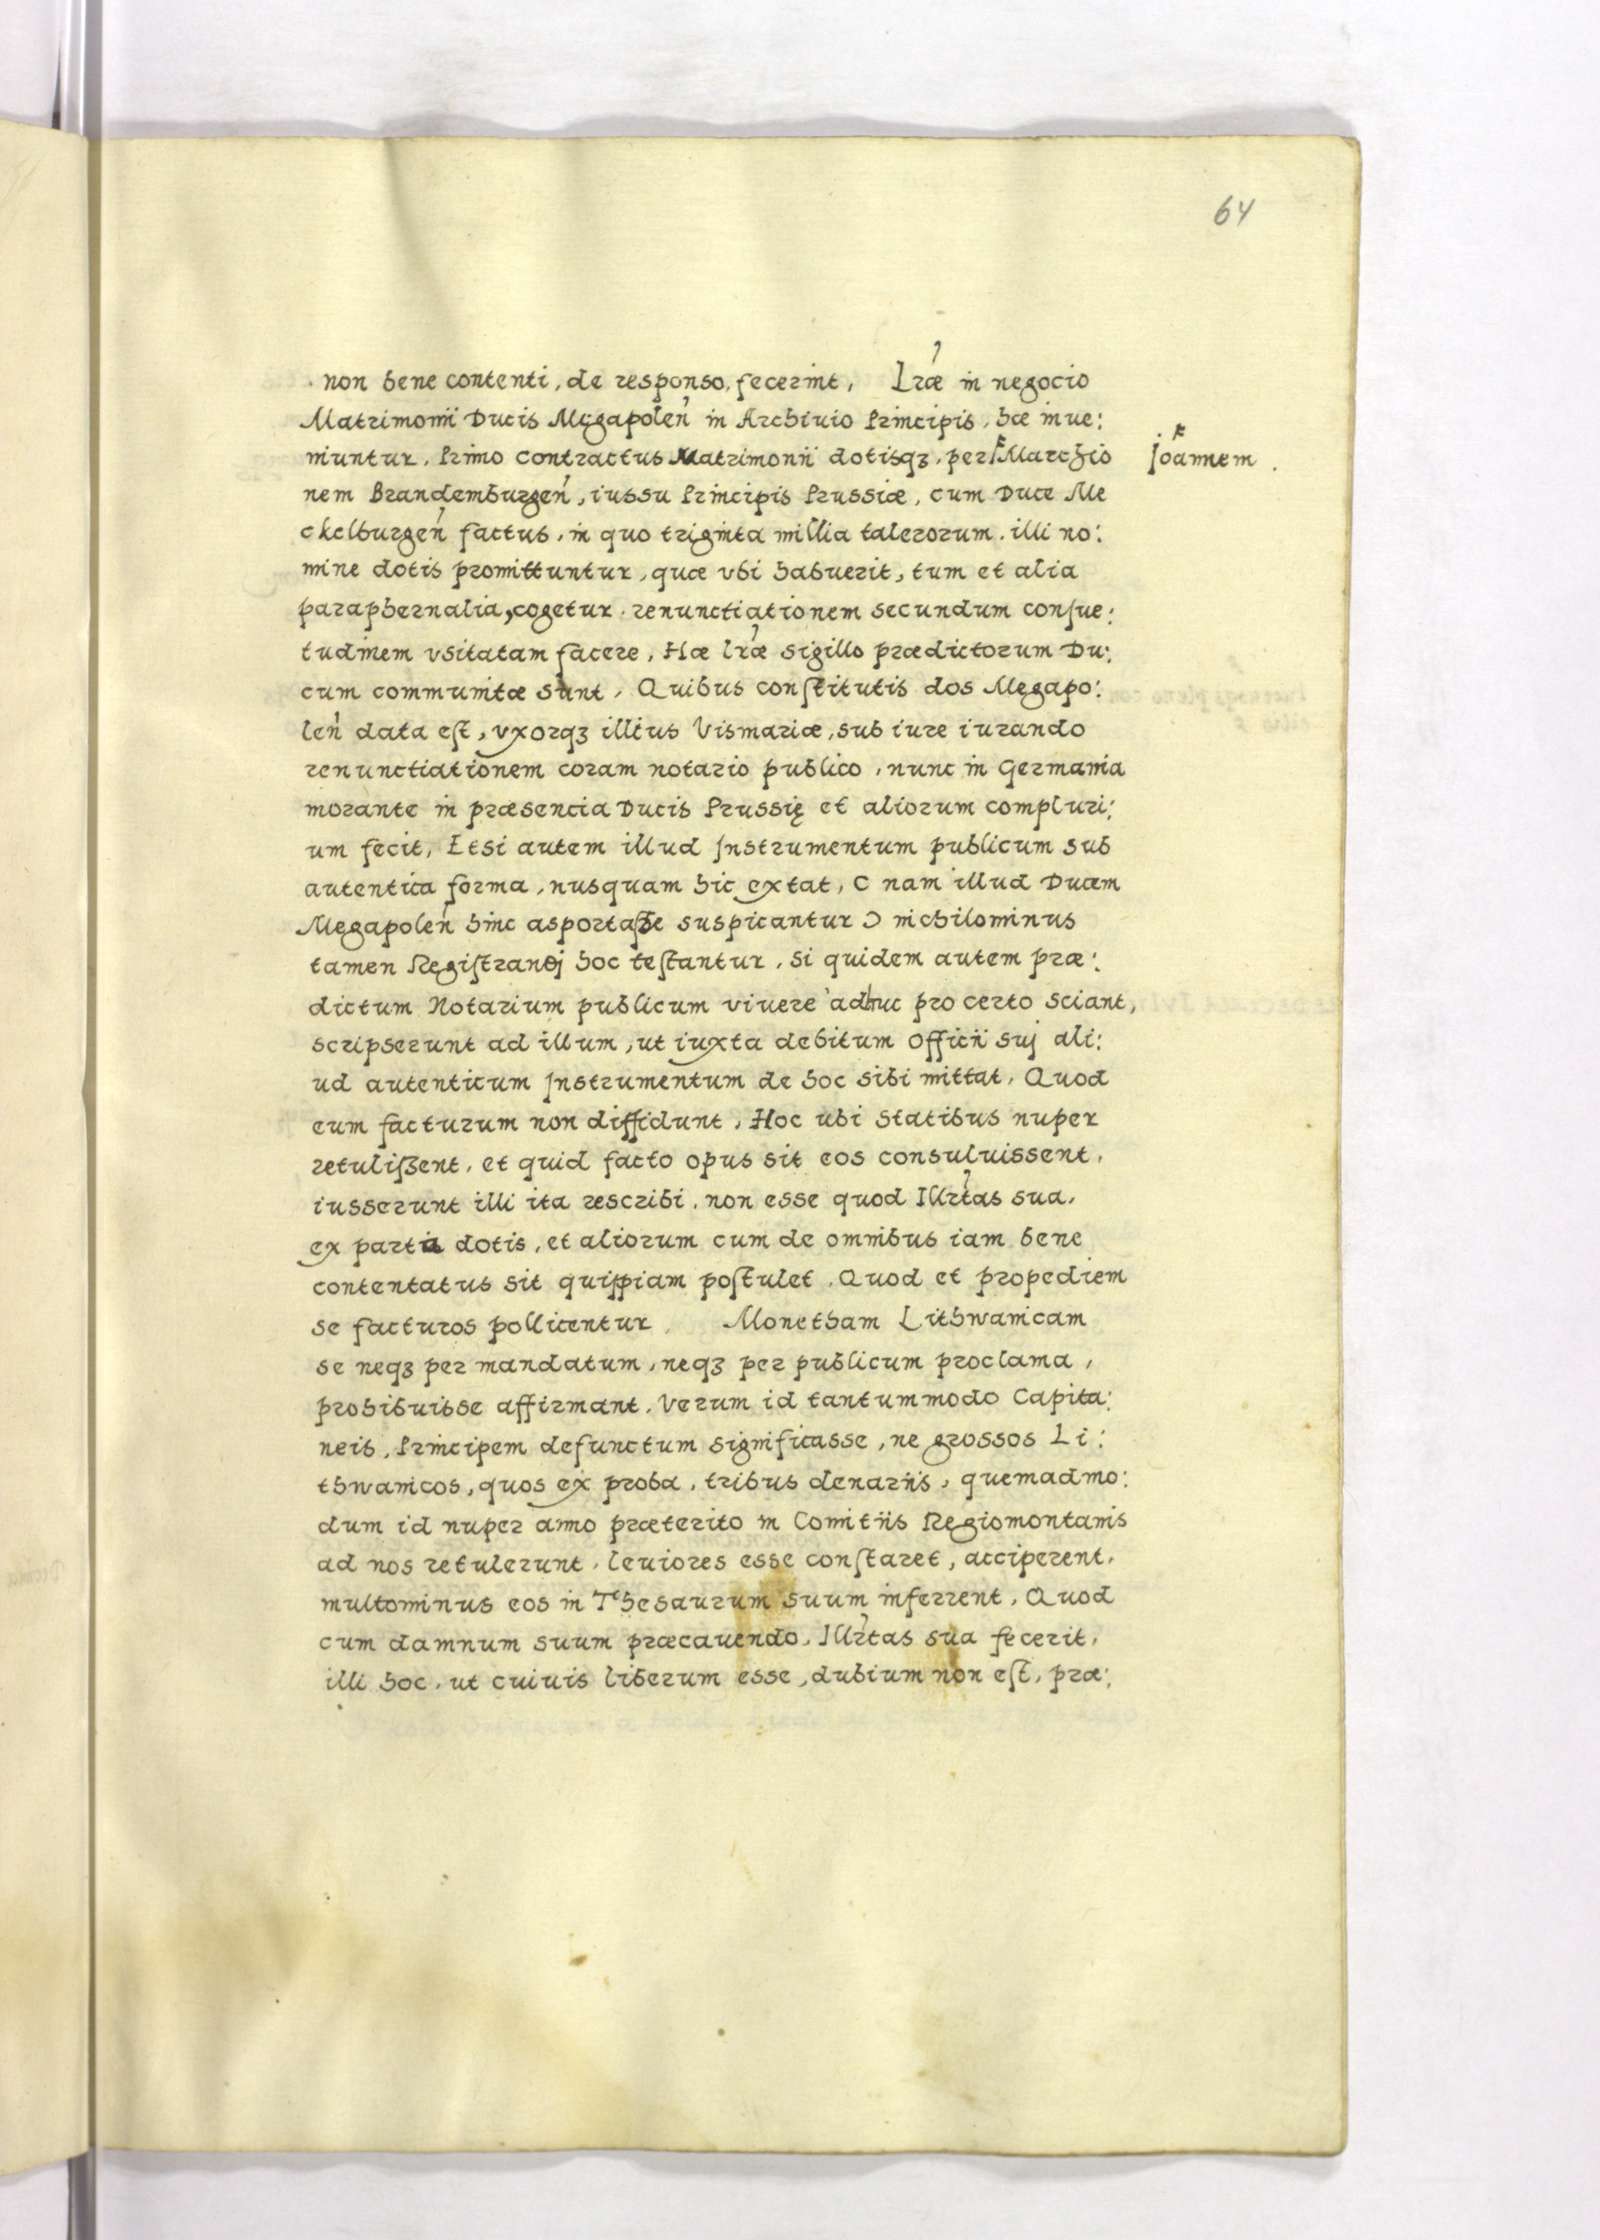 64
non bene contenti, de responso, fecerint, Lr̃æ in negocio
Matrimonii Ducis Megapoleñ in Archiuio Principis, hæ inue:
niuntur, Primo contractus Matrimonii dotisqȝ, per Marchio
Joannem.
nem Brandemburgeñ, iussu Principis Prussiæ, cum Duce Me
ckelburgeñ factus, in quo triginta millia talerorum, illi no:
mine dotis promittuntur, quæ vbi habuerit, tum et alia
paraphernalia, cogetur renunctiationem secundum consue:
tudinem vsitatam facere, Hæ lr̃æ sigillo prædictorum Du:
cum communitæ sunt, Quibus constitutis dos Megapo:
leñ data est, vxorqȝ illius Vismariæ, sub iure iurando
renunctiationem coram notario publico, nunc in Germania
morante in præsencia Ducis Prussię et aliorum compluri:
um fecit, Etsi autem illud Jnstrumentum publicum sub
autentica forma, nusquam hic extat, ( nam illud Ducem
Megapoleñ hinc asportaße suspicantur ) nichilominus
tamen Registrandj hoc testantur, si quidem autem præ:
dictum Notarium publicum viuere adhuc pro certo sciant,
scripserunt ad illum, ut iuxta debitum officii suj ali:
ud autenticum Jnstrumentum de hoc sibi mittat, Quod
eum facturum non diffidunt, Hoc ubi Statibus nuper
retulißent, et quid facto opus sit eos consuluissent,
iusserunt illi ita rescribi, non esse quod Illr̃tas sua,
ex parte dotis, et aliorum cum de omnibus iam bene
contentatus sit quippiam postulet, Quod et propediem
se facturos pollicentur, Monetham Lithwanicam
se neqȝ per mandatum, neqȝ per publicum proclama,
prohibuisse affirmant, Verum id tantummodo Capita:
neis, Principem defunctum significasse, ne grossos Li:
thwanicos, quos ex proba, tribus denariis, quemadmo:
dum id nuper anno præterito in Comitiis Regiomontanis
ad nos retulerunt, leuiores esse constaret, acciperent,
multominus eos in Thesaurum suum inferrent, Quod
cum damnum suum præcauendo, Illr̃tas sua fecerit,
illi hoc, ut cuiuis liberum esse, dubium non est, præ: